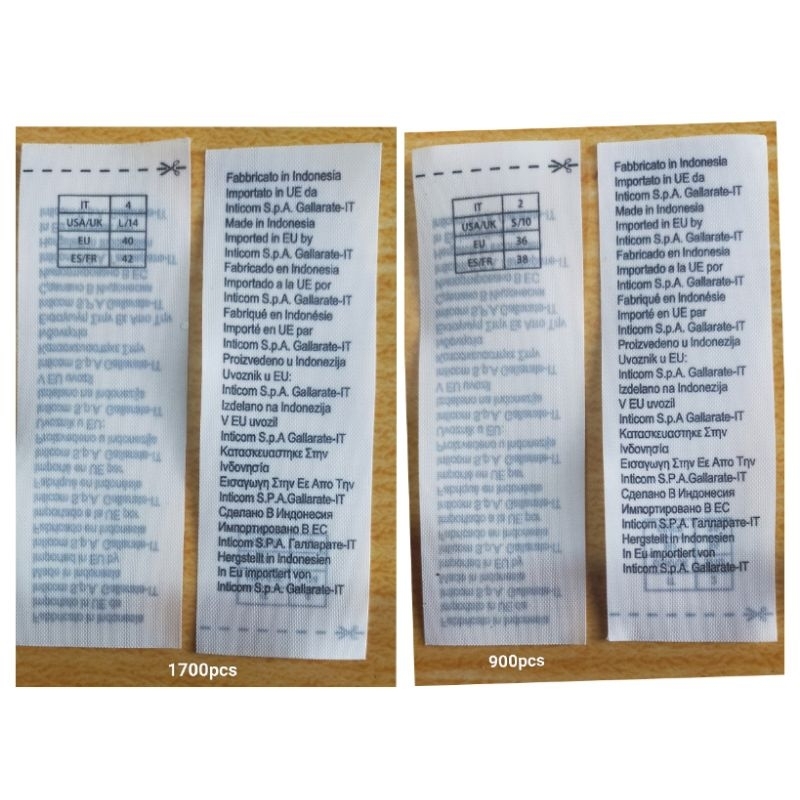 IT 4
USA/UK L/14
EU 40
ES/FR 42
Fabbricato in Indonesia
Importato in UE da
Inticom S.p.A. Gallarate-IT
Made in Indonesia
Imported in EU by
Inticom S.p.A. Gallarate-IT
Fabricado en Indonesia
Importado a la UE por
Inticom S.p.A. Gallarate-IT
Fabriqué en Indonésie
Importé en UE par
Inticom S.p.A. Gallarate-IT
Proizvedeno u Indonezija
Uvoznik u EU:
Inticom S.p.A. Gallarate-IT
Izdelano na Indonezija
V EU uvozil
Inticom S.p.A Gallarate-IT
Κατασκευαστηκε Στην
Ινδονησία
Εισαγωγη Στην Εε Απο Την
Inticom S.P.A.Gallarate-IT
Сделано В Индонесия
Импортировано В ЕС
Inticom S.P.A. Галларате-IT
Hergstellt in Indonesien
In Eu importiert von
Inticom S.p.A. Gallarate-IT
1700pcs
IT 2
USA/UK S/10
EU 36
ES/FR 38
Fabbricato in Indonesia
Importato in UE da
Inticom S.p.A. Gallarate-IT
Made in Indonesia
Imported in EU by
Inticom S.p.A. Gallarate-IT
Fabricado en Indonesia
Importado a la UE por
Inticom S.p.A. Gallarate-IT
Fabriqué en Indonésie
Importé en UE par
Inticom S.p.A. Gallarate-IT
Proizvedeno u Indonezija
Uvoznik u EU:
Inticom S.p.A. Gallarate-IT
Izdelano na Indonezija
V EU uvozil
Inticom S.p.A Gallarate-IT
Κατασκευαστηκε Στην
Ινδονησία
Εισαγωγη Στην Εε Απο Την
Inticom S.P.A.Gallarate-IT
Сделано В Индонесия
Импортировано В ЕС
Inticom S.P.A. Галларате-IT
Hergstellt in Indonesien
In Eu importiert von
Inticom S.p.A. Gallarate-IT
900pcs